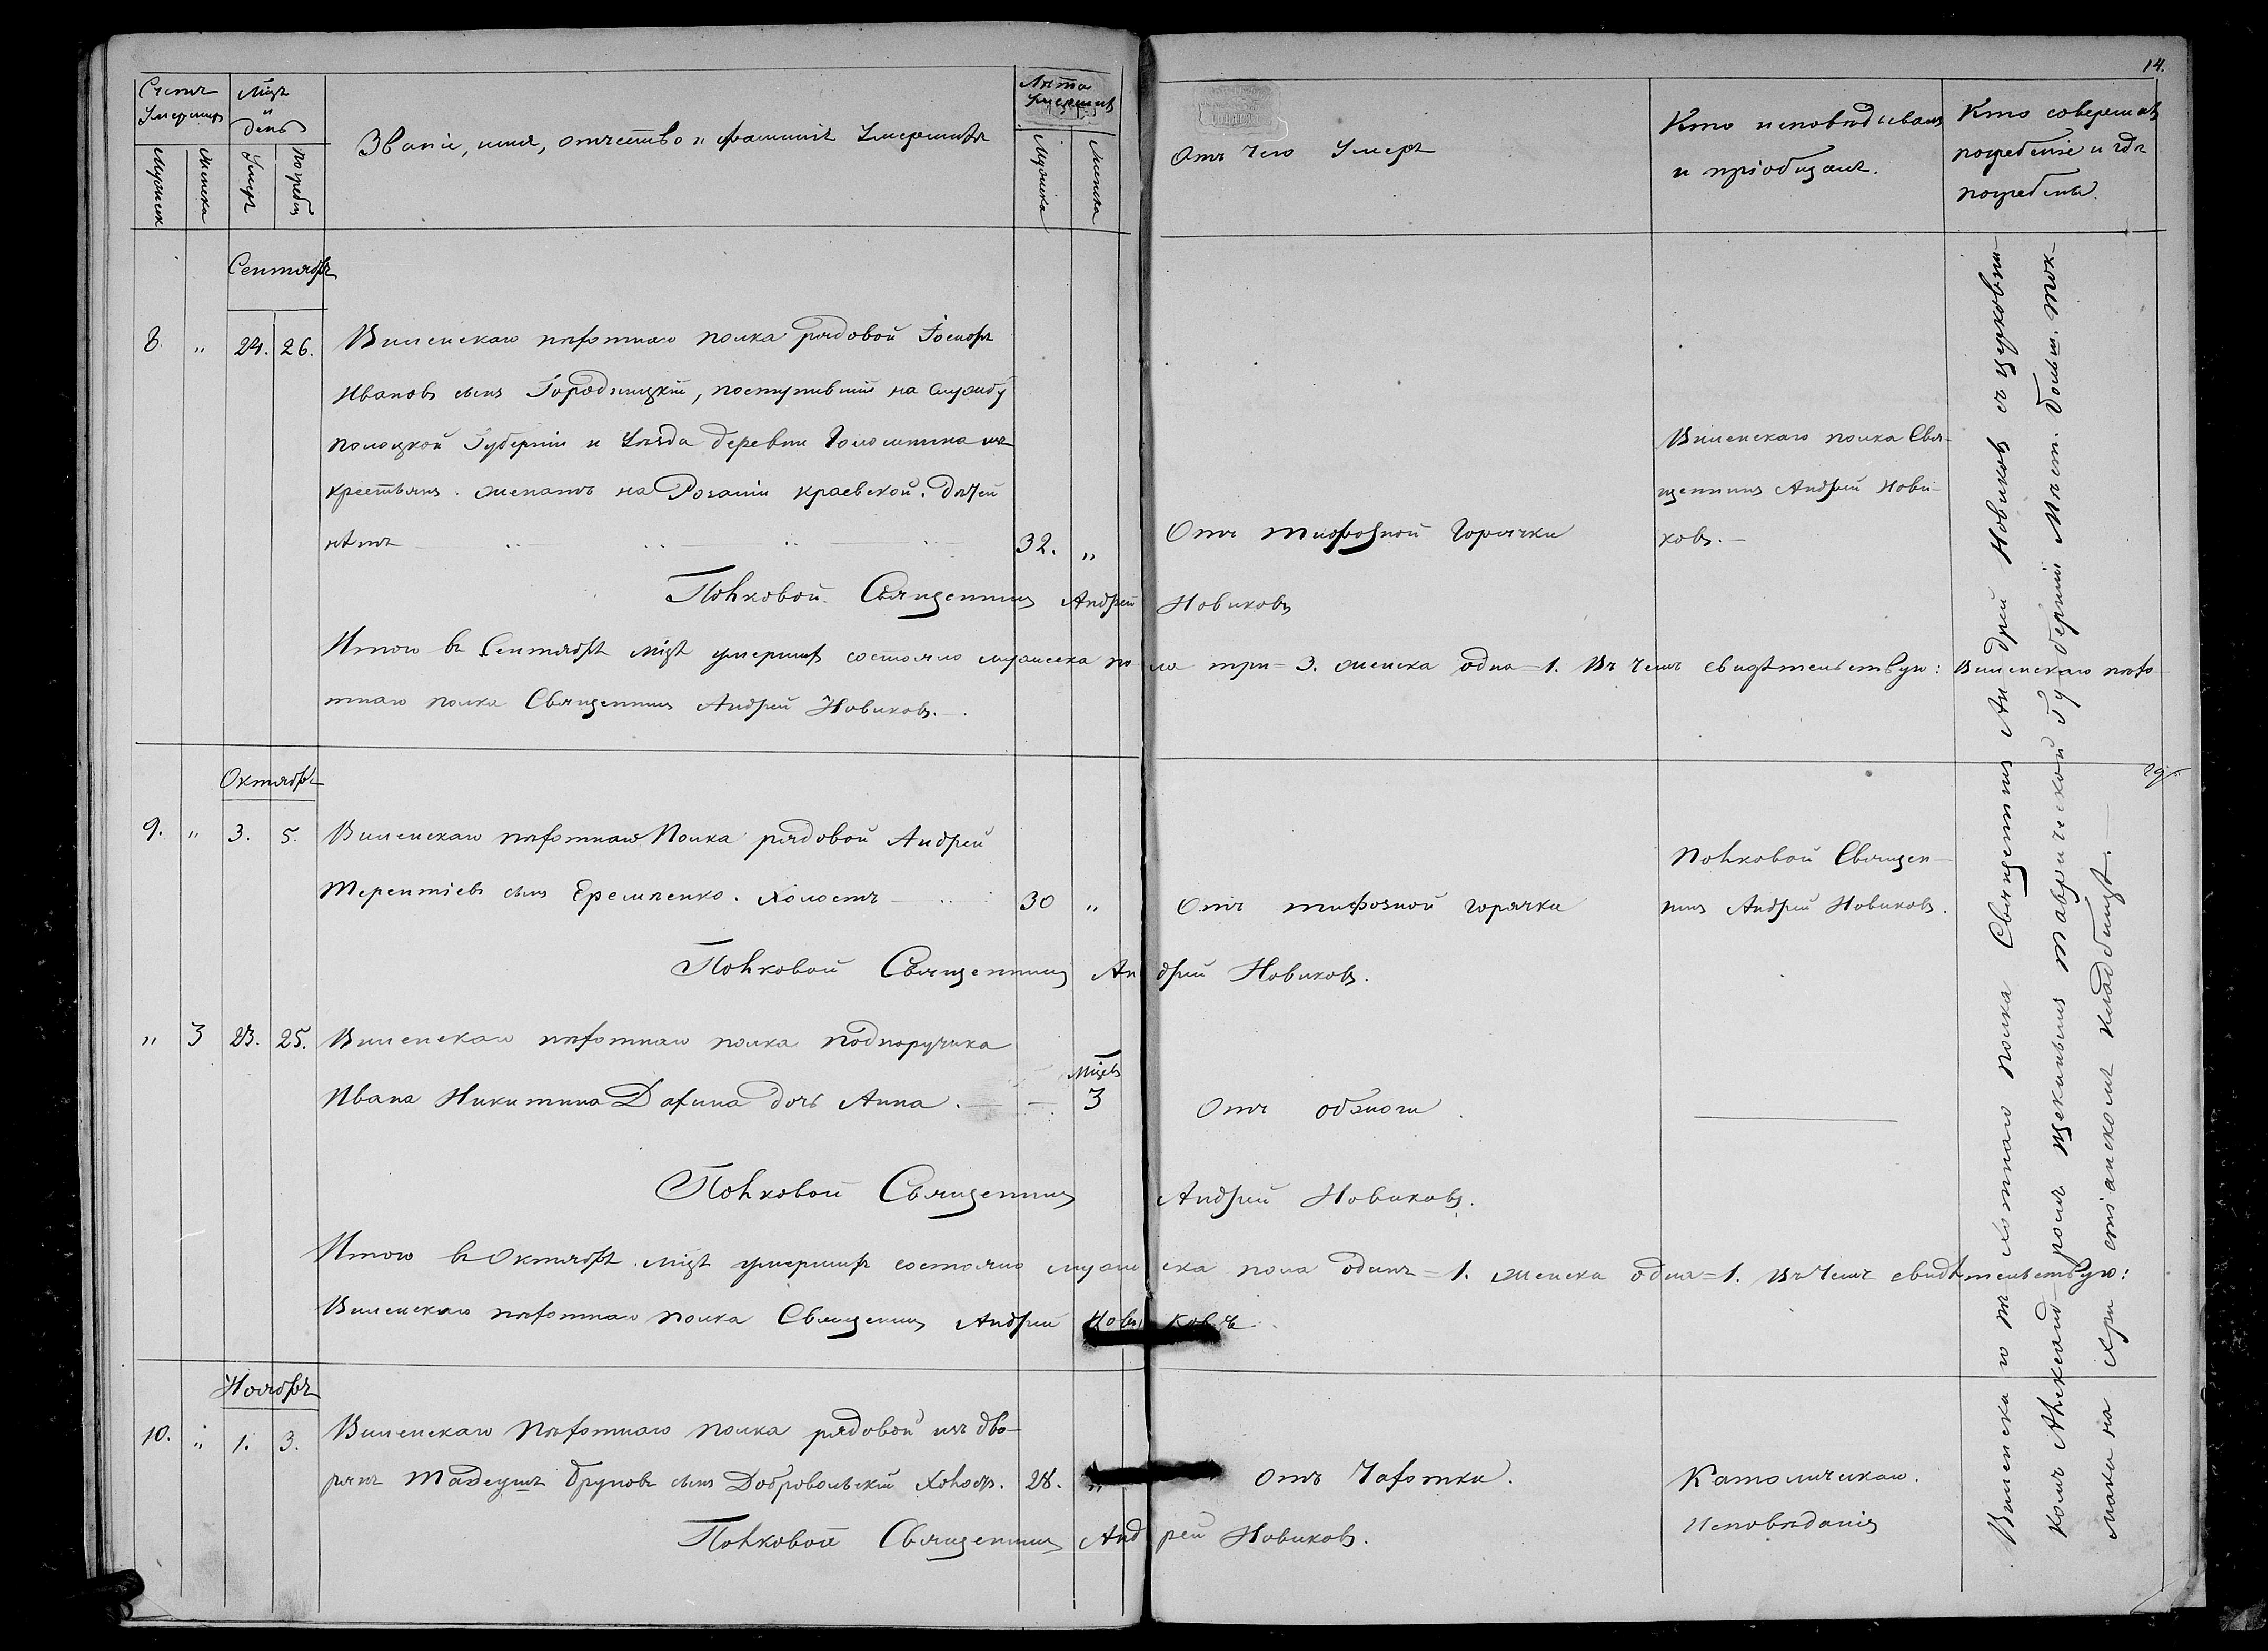 14.
Счетъ Умершихъ
Мцъ и день
Званіе, имя, отчество и фамилія Умершихъ
Лѣта Умершихъ
Отъ чего Умеръ
Кто исповѣдывалъ
и пріобщалъ.
Кто совершалъ
погребеніе и гдѣ
погребены.
Мужеска
Женска
Умеръ
Погребенъ
Мужеска
Женска
Сентябрь
8 " 24. 26. Виленскаго пѣхотнаго полка рядовой Іосифъ
Ивановъ сынъ Городницкій, поступившій на службу
полоцкой Губерніи и Уѣзда деревни изъ
крестьянъ. женатъ на Розаліи краевской. Дѣтей
нѣтъ 32. "
Отъ тифозной Горячки
Виленскаго полка Свя-
щенникъ Андрей Нови-
ковъ.
Полковой Священникъ Андрей Новиковъ
Итого въ Сентябрѣ мцѣ умершихъ состояло мужеска пола три=3. женска одна=1. Въ чемъ свидѣтельствую: Виленскаго пѣхо-
тнаго полка Священникъ Андрей Новиковъ.
Октябрь
9. " 3. 5. Виленскаго пѣхотнаго Полка рядовой Андрей
Терентіевъ сынъ Еремѣенко. холостъ 30 "
Отъ тифозной горячки
Полковой Священ-
никъ Андрей Новиковъ.
Полковой Священникъ Андрей Новиковъ.
" 3 23. 25. Виленскаго пѣхотнаго полка подпоручика
Ивана Никитина дочь Анна. Мцевъ 3
Отъ обжоги.
Полковой Священникъ Андрей Новиковъ.
Итого въ Октябрѣ мцѣ умершихъ состояло мужеска пола одинъ=1. женска одна=1. Въ чемъ свидѣтельствую:
Виленскаго пѣхотнаго полка Священникъ Андрей Новиковъ.
Ноябрь
10. " 1. 3. Виленскаго Пѣхотнаго полка рядовой изъ дво-
рянъ Тадеушъ Бруновъ сынъ Добровольскій Холостъ. 28. "
Отъ Чахотки.
Католическаго.
Исповѣданія
Полковой Священникъ Андрей Новиковъ.
Виленскаго пѣхотнаго полка Священникъ Андрей Новиковъ съ церковни-
комъ Александромъ Щекинымъ таврической Губерніи Мѣст. больш. ток-
мака на Христіанскомъ кладбищѣ.